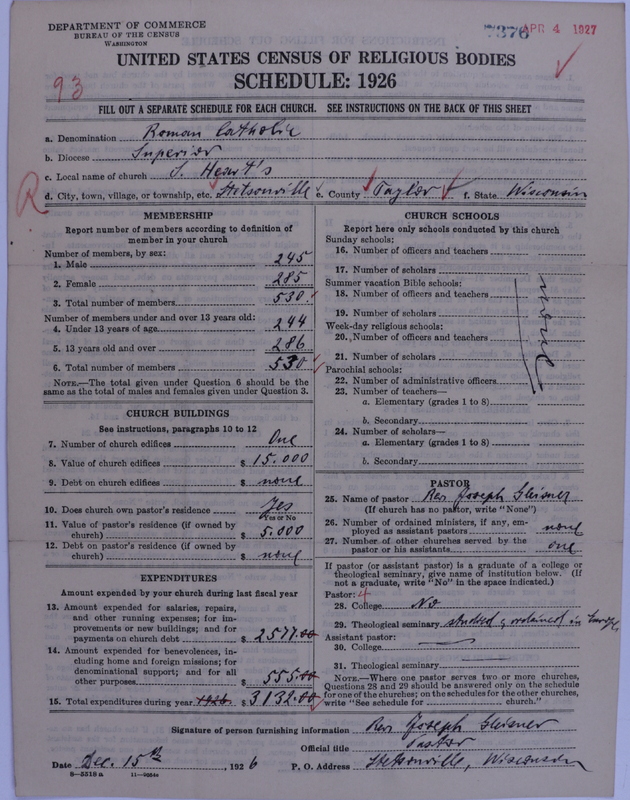 DEPARTMENT OF COMMERCE
BUREAU OF THE CENSUS
WASHINGTON
7376 APR 4 1927
UNITED STATES CENSUS OF RELIGIOUS BODIES
SCHEDULE: 1926
93
FILL OUT A SEPARATE SCHEDULE FOR EACH CHURCH. SEE INSTRUCTIONS ON THE BACK OF THIS SHEET
a. Denomination Roman Catholic
b. Diocese Superior
c. Local name of church S. Heart's
R
d. City, town, village, or township, etc. Stetsonville e. County Taylor f. State Wisconsin
MEMBERSHIP
Report number of members according to definition of
member in your church
Number of members, by sex:
1. Male 245
2. Female 285
3. Total number of members 530
Number of members under and over 13 years old:
4. Under 13 years of age 244
5. 13 years old and over 286
6. Total number of members 530
NOTE.—The total given under Question 6 should be the
same as the total of males and females given under Question 3.
CHURCH BUILDINGS
See instructions, paragraphs 10 to 12
7. Number of church edifices One
8. Value of church edifices $ 15.000
9. Debt on church edifices $ none
10. Does church own pastor's residence Yes
Yes or No
11. Value of pastor's residence (if owned by
church) $ 5.000
12. Debt on pastor's residence (if owned by
church) $ none
EXPENDITURES
Amount expended by your church during last fiscal year
13. Amount expended for salaries, repairs,
and other running expenses; for im-
provements or new buildings; and for
payments on church debt $ 2577.00
14. Amount expended for benevolences, in-
cluding home and foreign missions; for
denominational support; and for all
other purposes $ 555.00
15. Total expenditures during year 1926 $ 3132.00
CHURCH SCHOOLS
Report here only schools conducted by this church
Sunday schools:
16. Number of officers and teachers
17. Number of scholars
Summer vacation Bible schools:
18. Number of officers and teachers
19. Number of scholars
Week-day religious schools:
20. Number of officers and teachers
21. Number of scholars
none
Parochial schools:
22. Number of administrative officers
23. Number of teachers—
a. Elementary (grades 1 to 8)
b. Secondary
24. Number of scholars—
a. Elementary (grades 1 to 8)
b. Secondary
PASTOR
25. Name of pastor Rev. Joseph Gleisner
(If church has no pastor, write "None")
26. Number of ordained ministers, if any, em-
ployed as assistant pastors none
27. Number of other churches served by the
pastor or his assistants one
If pastor (or assistant pastor) is a graduate of a college or
theological seminary, give name of institution below. (If
not a graduate, write "No" in the space indicated.)
Pastor: 4
28. College No
29. Theological seminary studied & ordained in Europe
Assistant pastor:
30. College
31. Theological seminary
NOTE.—Where one pastor serves two or more churches,
Questions 28 and 29 should be answered only on the schedule
for one of the churches; on the schedules for the other churches,
write "See schedule for church."
Signature of person furnishing information Rev Joseph Gleisner
Official title Pastor
Date Dec. 15th, 1926 P. O. Address Stetsonville, Wisconsin
8—5318 a